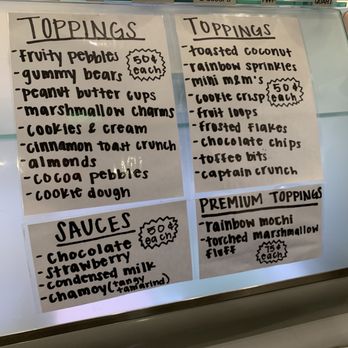 TOPPINGS
- fruity pebbles
- gummy bears
50¢ each
- peanut butter cups
- marshmallow charms
- cookies & cream
- cinnamon toast crunch
- almonds
- cocoa pebbles
- cookie dough
TOPPINGS
- toasted coconut
- rainbow sprinkles
- mini m&m's
- cookie crisp
50¢ each
- fruit loops
- frosted flakes
- chocolate chips
- toffee bits
- captain crunch
SAUCES
50¢ each
- chocolate
- strawberry
- condensed milk
- chamoy (tangy tamarind)
PREMIUM TOPPINGS
- rainbow mochi
- torched marshmallow
fluff
75¢ each